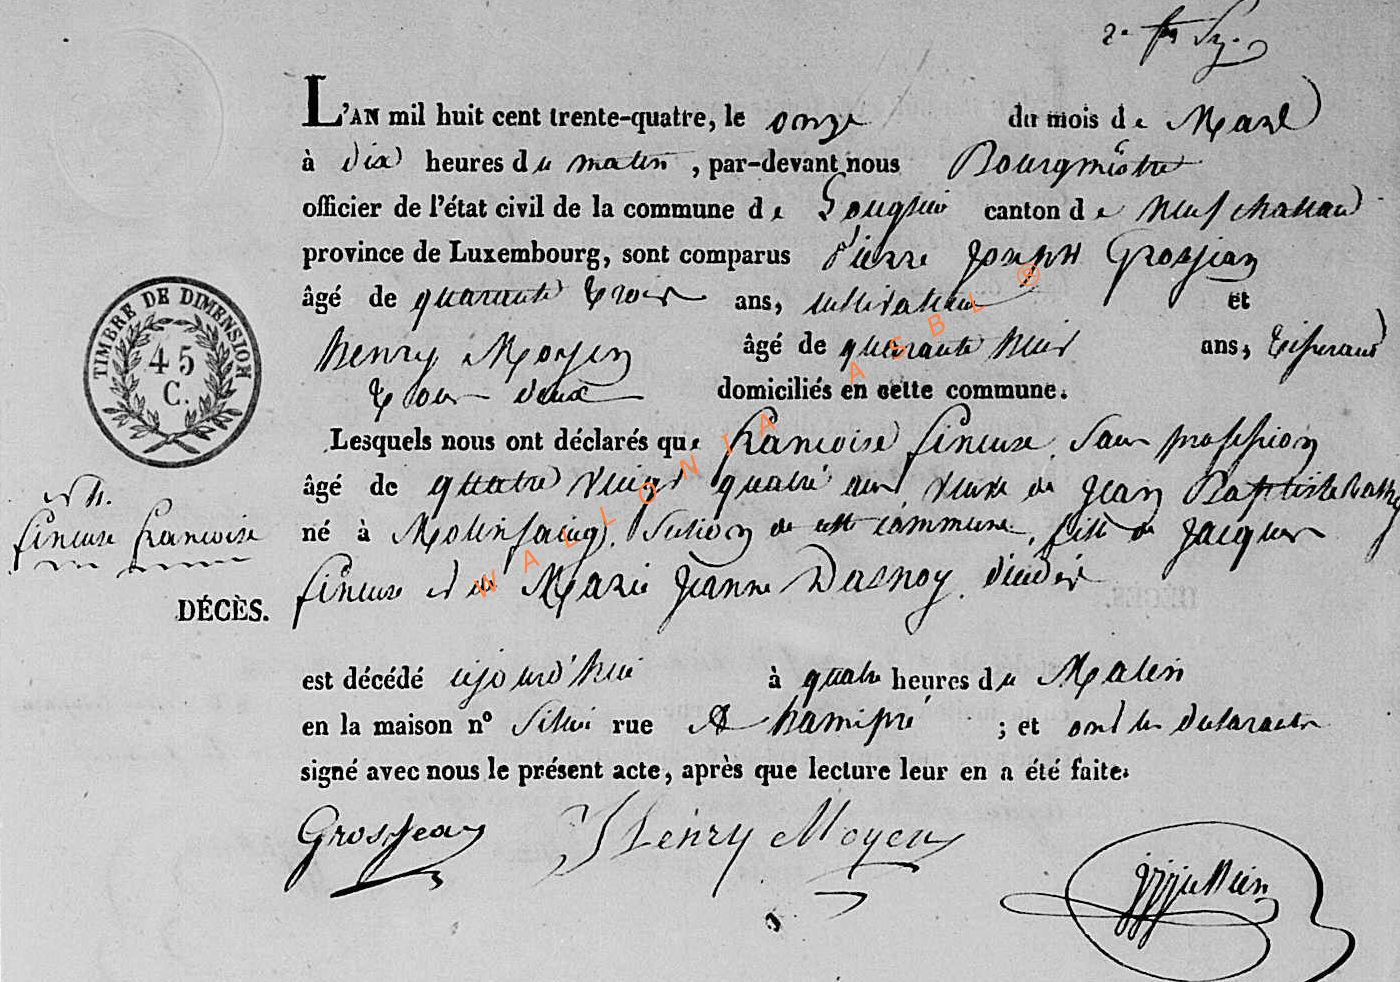 L'AN mil huit cent trente-quatre, le onze du mois de Mars
à dix heures du matin, par-devant nous Bourgmêstre
officier de l'état civil de la commune de Longlier canton de Neufchateau
province de Luxembourg, sont comparus Pierre Joseph Grosjean
âgé de quarante trois ans, cultivateur et
henry Moyen âgé de quarante huit ans, tisserand
tous deux domiciliés en cette commune.
Lesquels nous ont déclarés que francoise fineuse, Sans profession
âgé de quatre vingt quatre ans, veuve de Jean Baptiste
TIMBRE DE DIMENSION
45
C.
né à Molinfaing, Section de cette commune, fille de Jacques
fineuse francoise
fineuse et de Marie Jeanne Dasnoy, décédés
DÉCÈS.
est décédé ajourd'hui à quatre heures du Matin
en la maison n° rue A hamipré ; et ont les déclarants
signé avec nous le présent acte, après que lecture leur en a été faite.
Grosjean Henry Moyen
WALLONIA ASBL ®